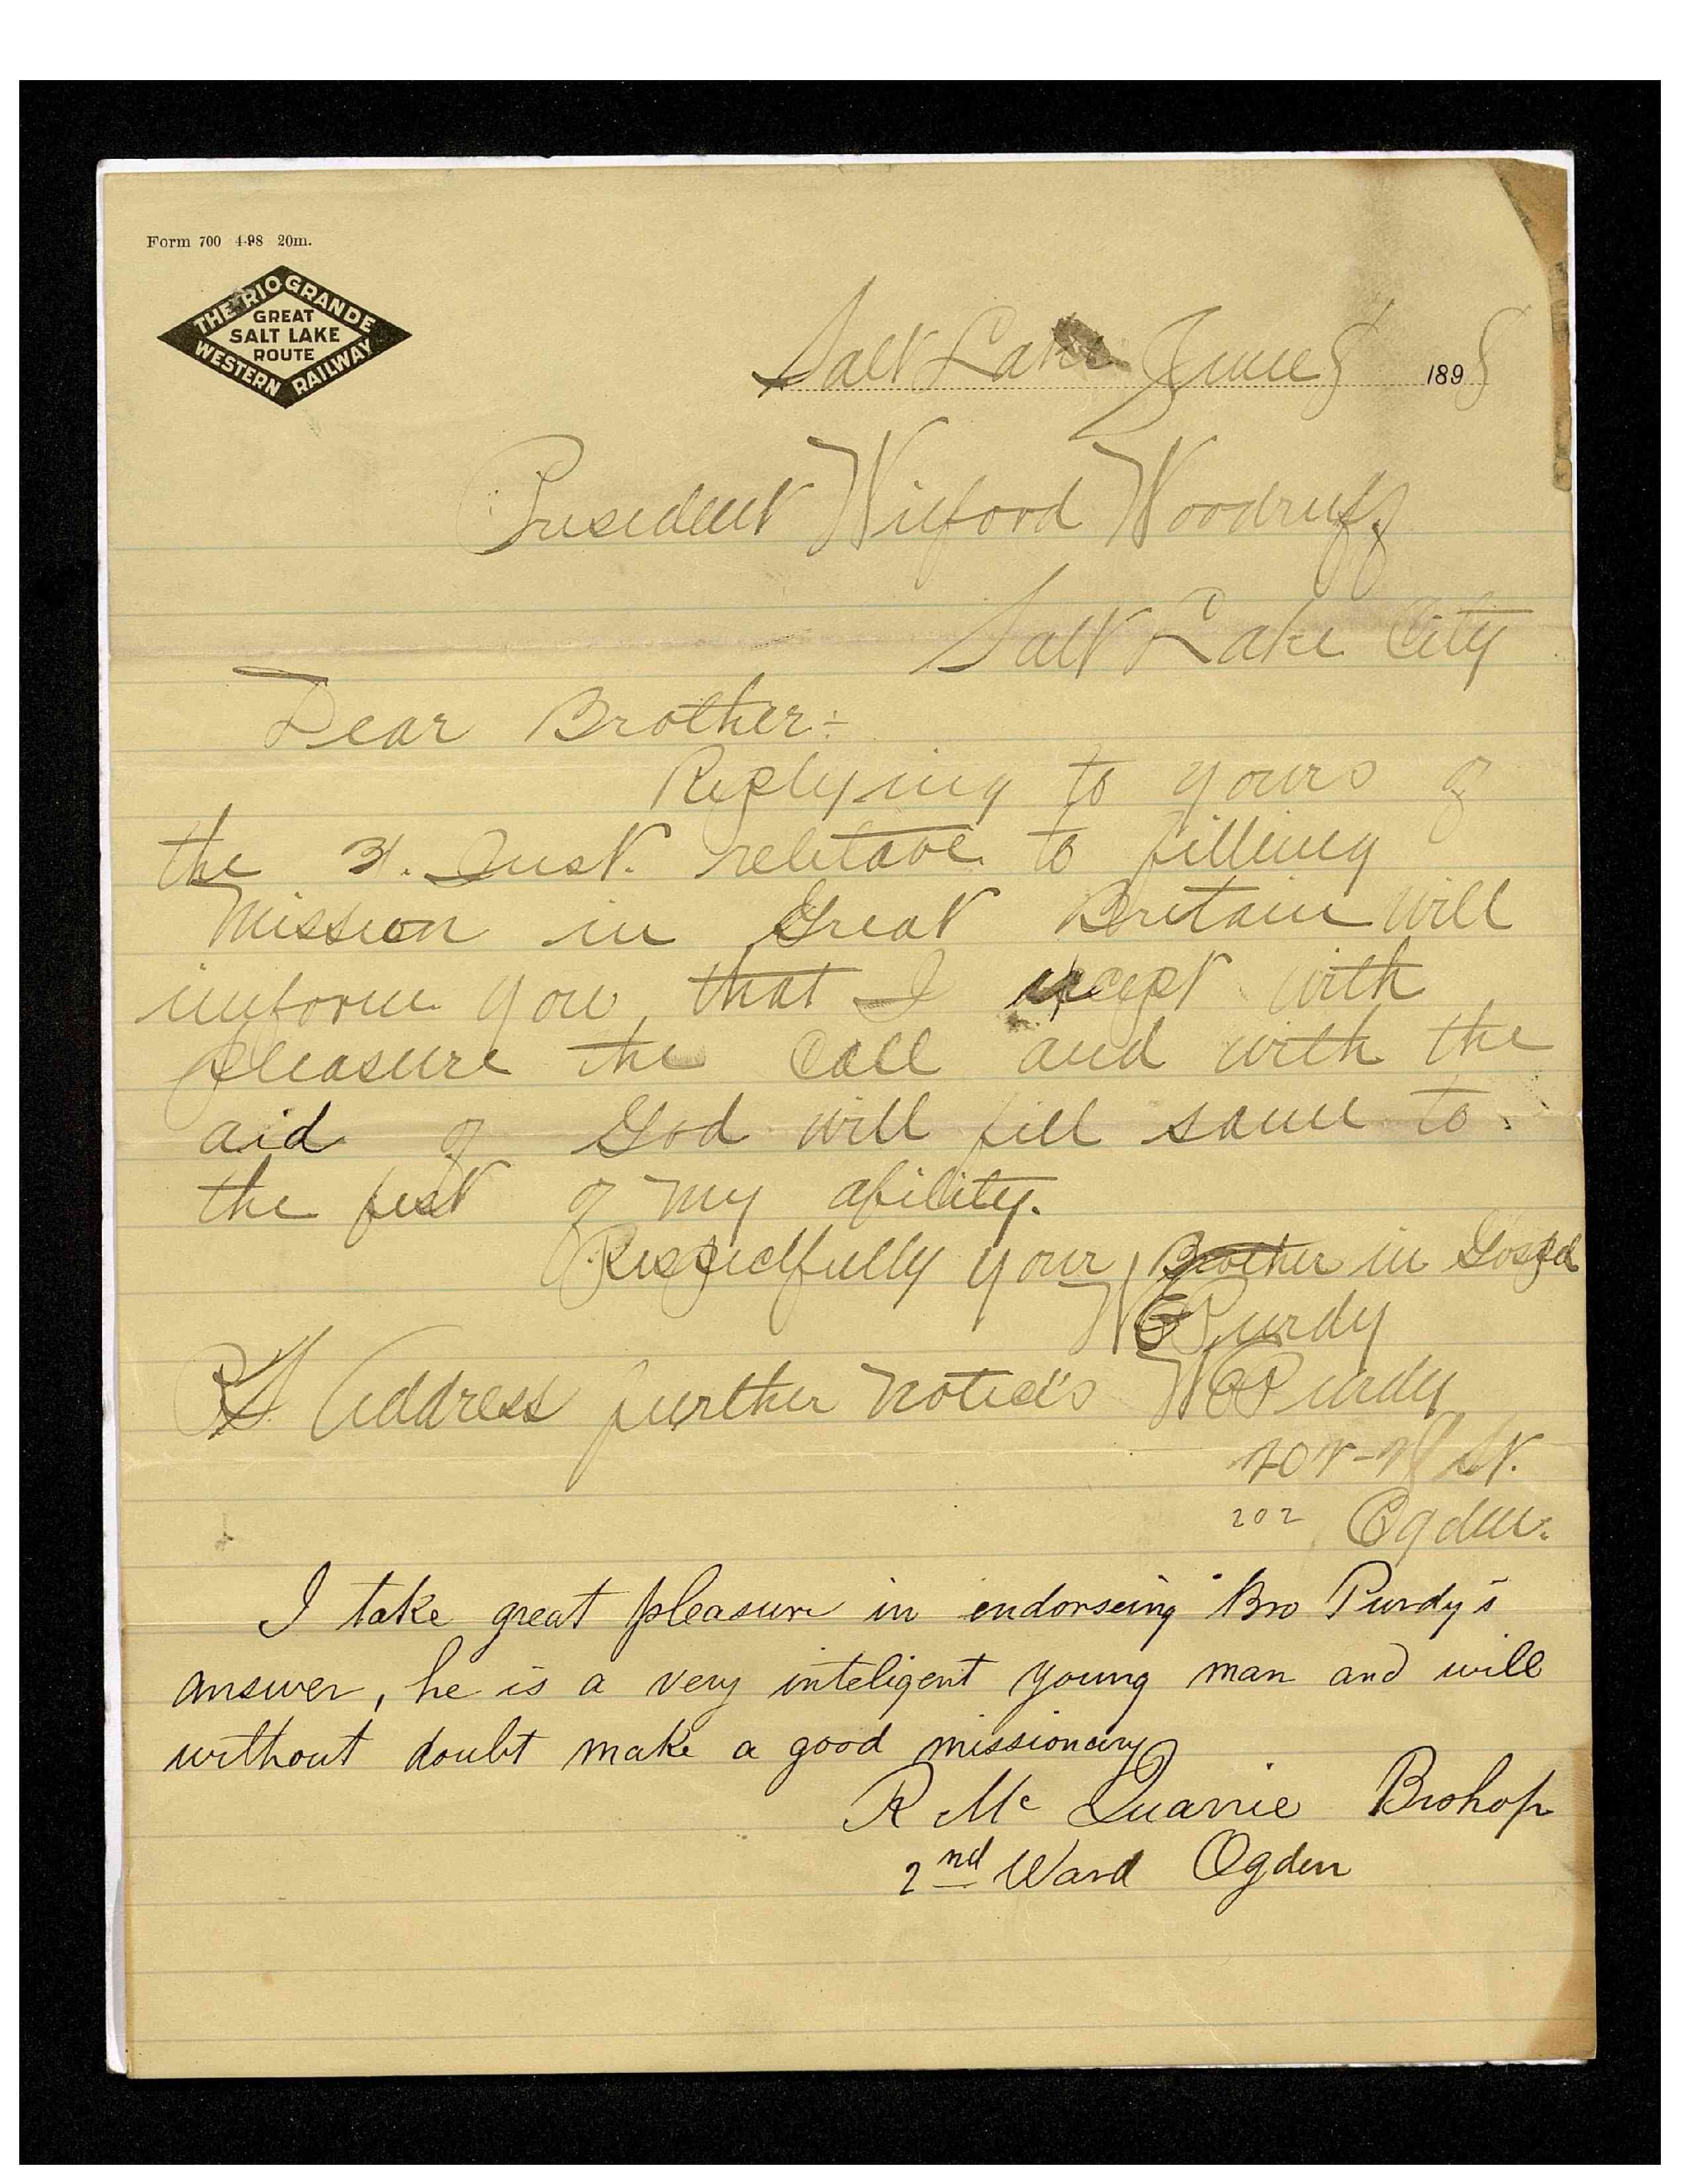 Form 700 4-98 20m.
THE RIO GRANDE
GREAT
SALT LAKE
ROUTE
WESTERN RAILWAY
Salt Lake June 8 1898
President Wilford Woodruff
Salt Lake City
Dear Brother:-
Replying to yours of
the 31. Inst. relitave to filling
Mission in Great Britain will
inform you that I accept with
pleasure the Call and with the
aid of God will fill same to
the best of my ability.
Respectfully your Brother in Gospel
W E Purdy
P.S. Address further Notice's W E Purdy
St.
202 Ogden.
I take great pleasure in endorseing Bro Purdy's
answer, he is a very inteligent young man and will
without doubt make a good missionary
R Mc Quarrie Bishop
2nd Ward Ogden